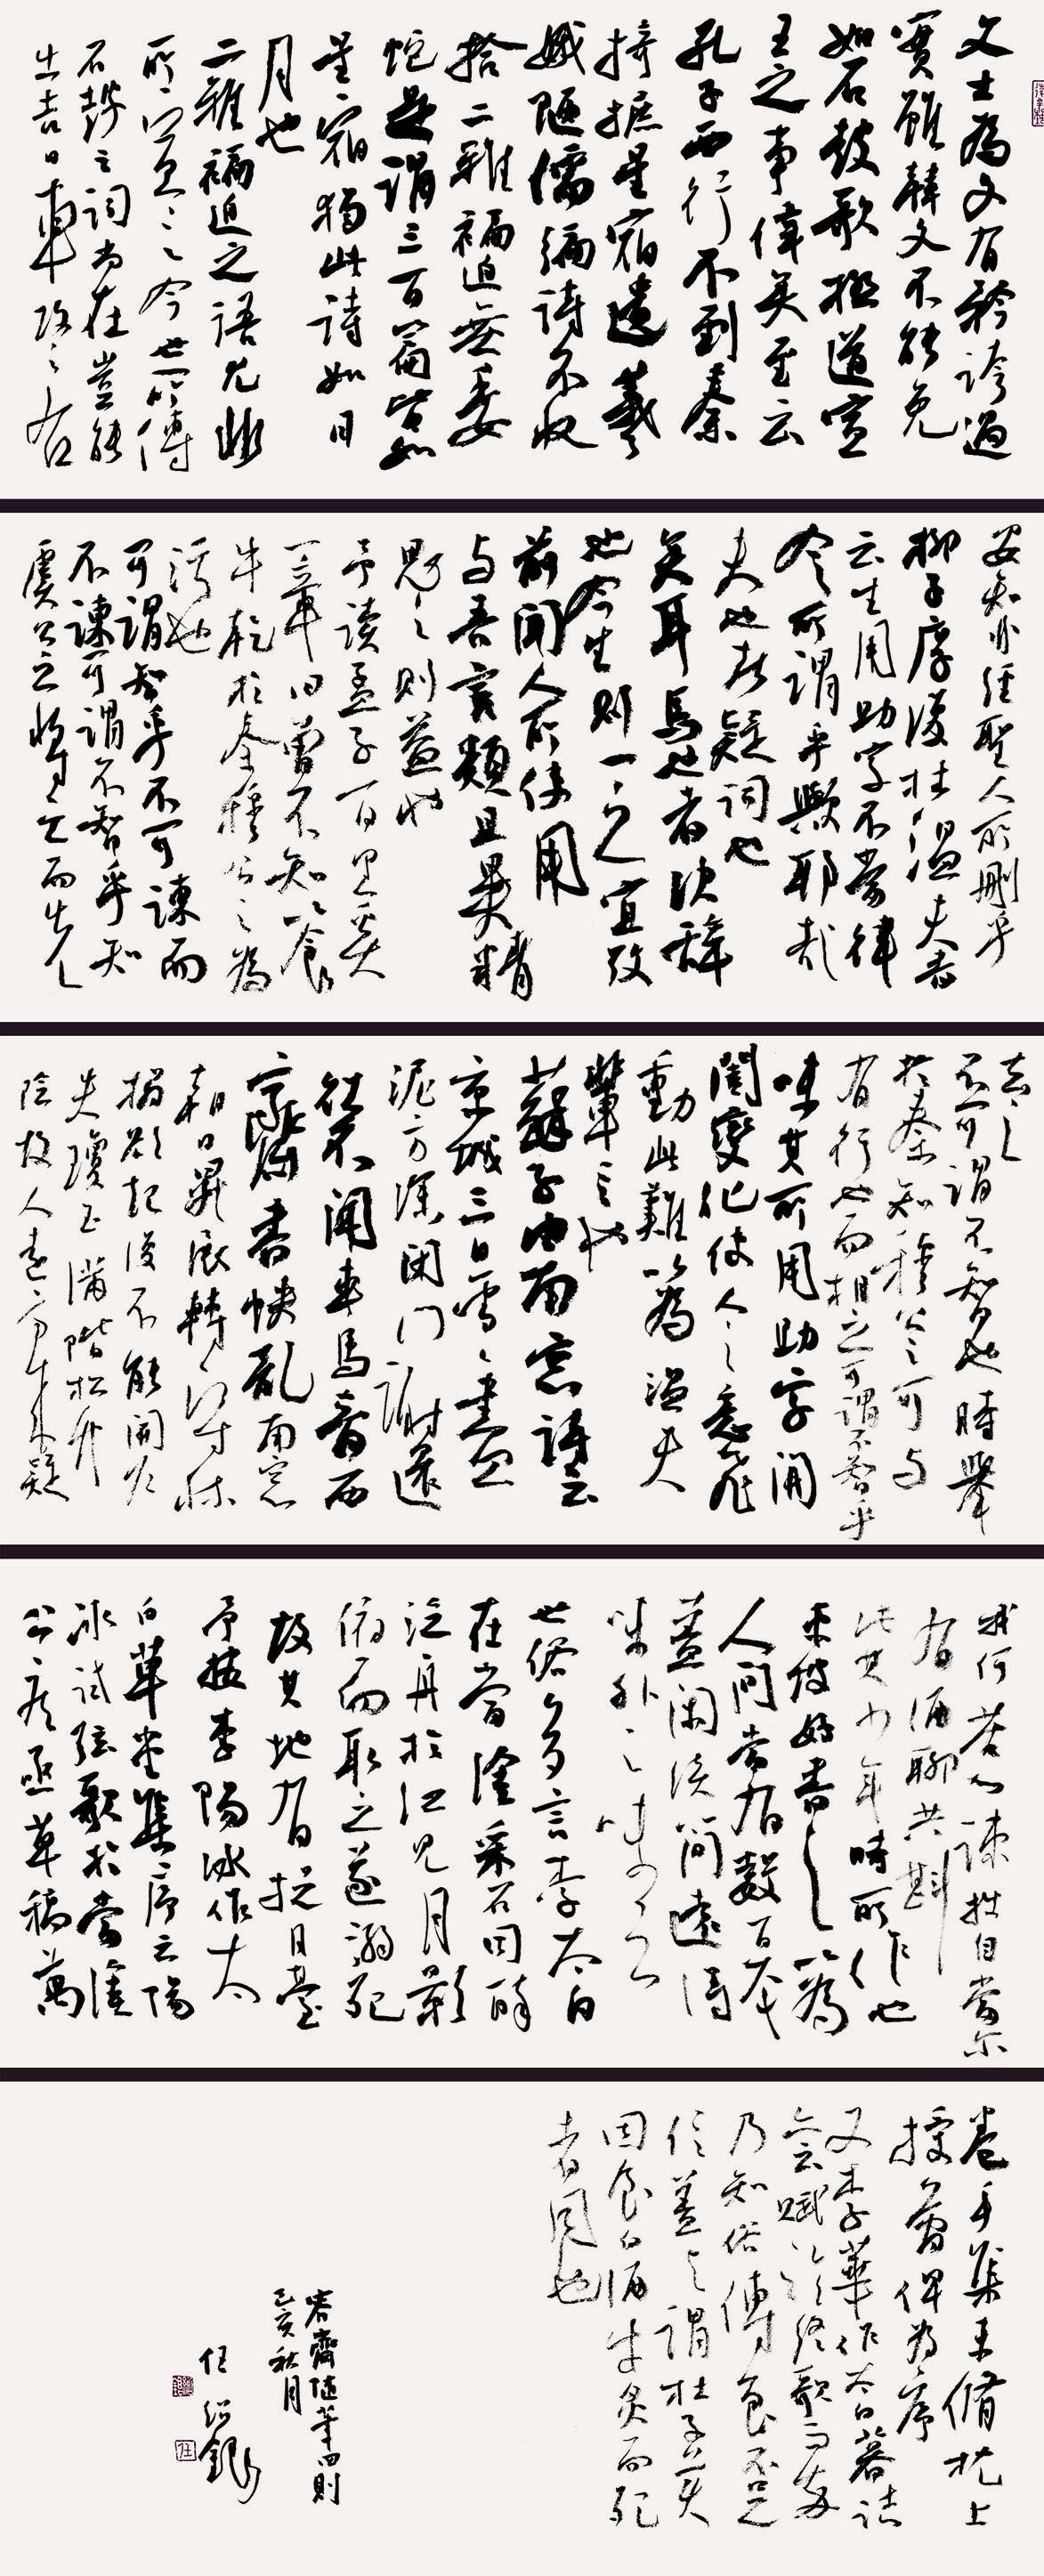 文士為文有矜誇過
實雖韓文不能免
如石鼓歌極道宣
王之事偉矣至云
孔子西行不到秦
掎摭星宿遺羲
娥陋儒編詩不收
拾二雅褊迫無委
蛇是謂三百篇皆如
星宿獨此詩如日
月也
二雅褊迫之語尤非
所宜言今世所傳
石鼓之詞尚在豈能
出吉日車攻之右
安知非經聖人所刪乎
柳子厚復杜溫夫書
云生用助字不當律
令所謂乎歟耶哉
夫也者疑詞也
矣耳焉也者決辭
也今生則一之宜攷
前聞人所使用
與吾言類且異精
思之則益也
予讀孟子百里奚
一章曰曾不知以食
牛干於秦穆公之為
污也
可謂智乎不可諫而
不諫可謂不智乎知
虞公之將亡而先
去之
不可謂不智也時舉
於秦知穆公之可與
有行也而相之可謂不智乎
味其所用助字開
闔變化使人之意飛
動此難以為溫夫
輩言也
蘇子由南窗詩云
京城三日雪雪盡
泥方深閉門謝還
往不聞車馬音西
齋書帙亂南窗
朝日昇展轉守床
榻欲起復不能開戶
失瓊玉滿階松竹
陰故人遠方來疑
我何苦心疎拙自當爾
有酒聊共斟
此其少年時所作也
東坡好書之以為
人間當有數百本
蓋閑淡簡遠得
味外之味云
世俗多言李太白
在當塗采石因醉
泛舟於江見月影
俯而取之遂溺死
故其地有捉月臺
予按李陽冰作太
白草堂集序云陽
冰試弦歌於當塗
公疾亟草稿萬
卷手集未脩枕上
授簡俾為序
又李華作太白墓誌
亦云賦臨終歌而卒
乃知俗傳良不足
信蓋與謂杜子美
因食白酒牛炙而死
者同也
容齋隨筆四則
乙亥秋月
任